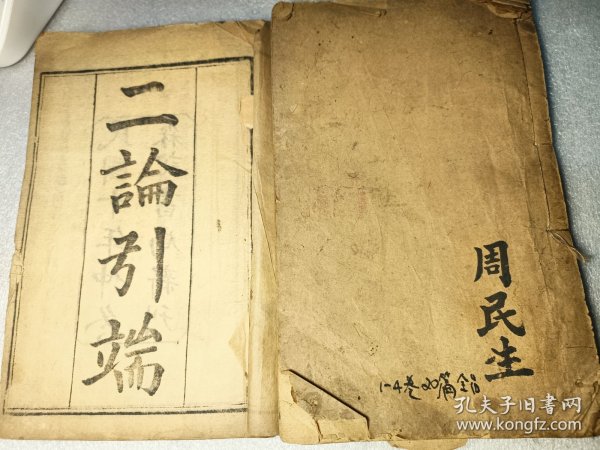 二論引端
周民生
1-4卷20篇全
孔夫子旧书网
www.kongfz.com